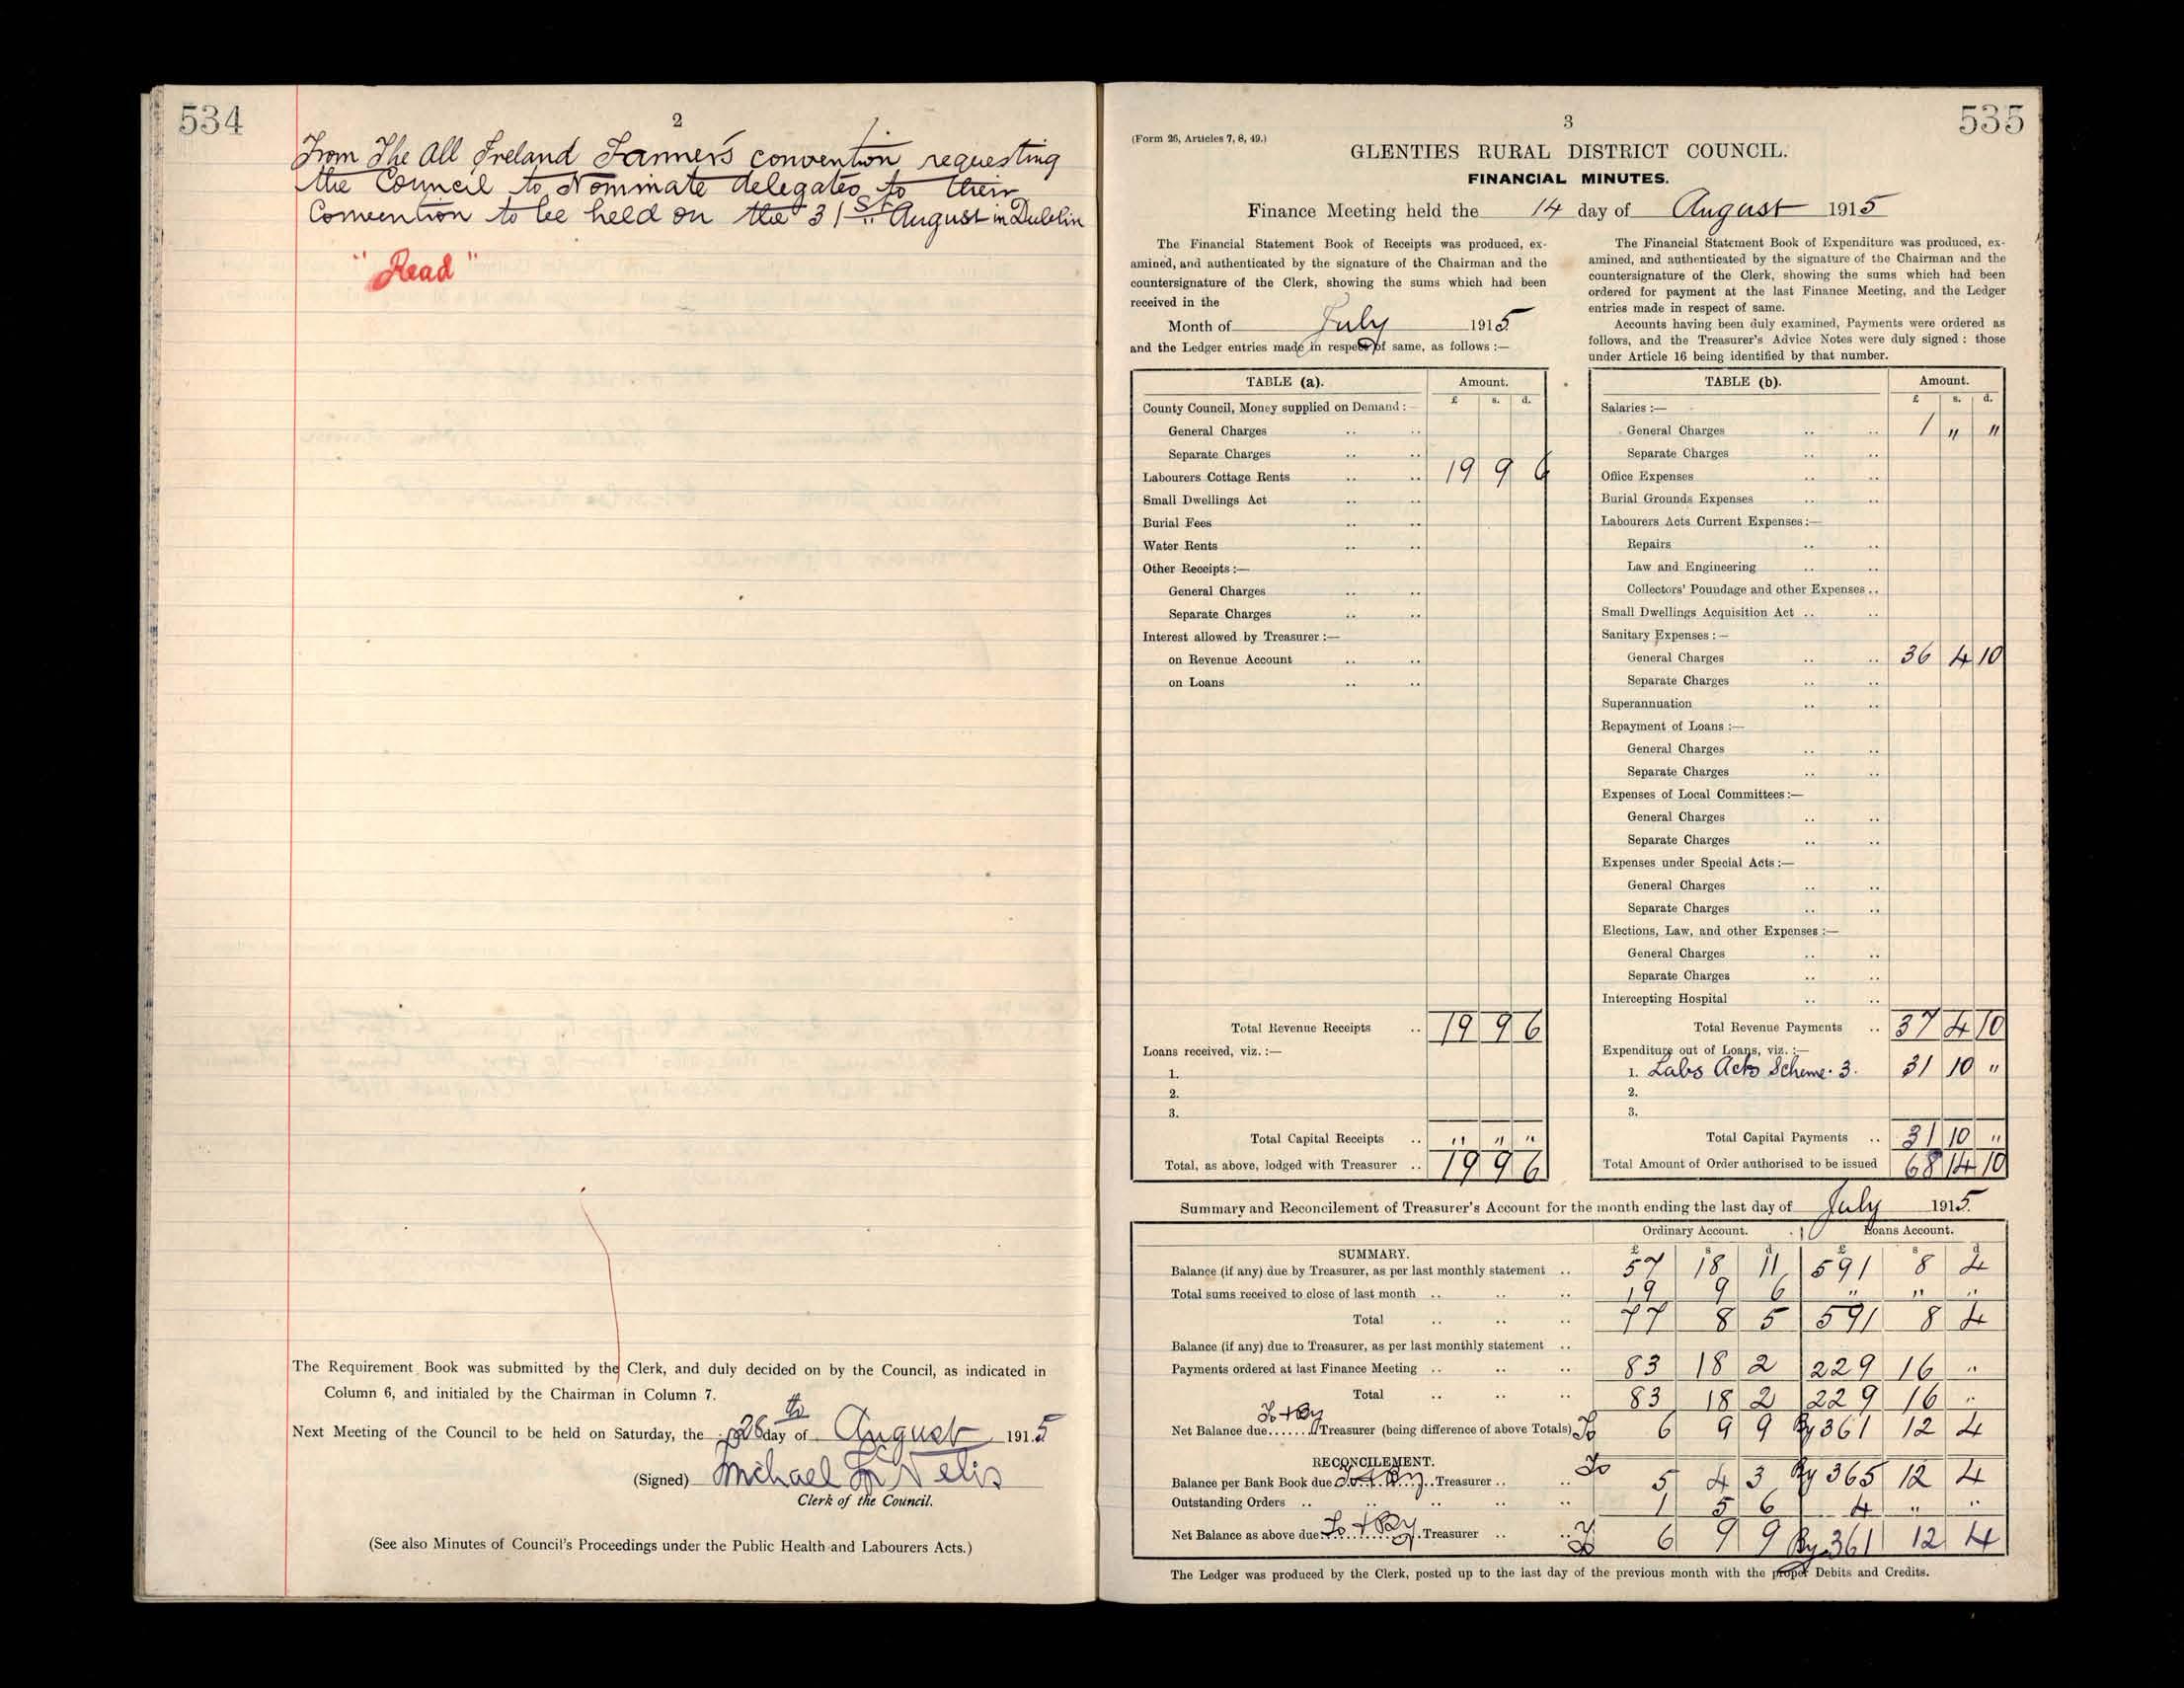 534
2
From The All Ireland Farmer's convention requesting
the Council to Nominate delegates to their
Convention to be held on the 31st August in Dublin
"Read"
The Requirement Book was submitted by the Clerk, and duly decided on by the Council, as indicated in
Column 6, and initialed by the Chairman in Column 7.
Next Meeting of the Council to be held on Saturday, the 28th day of August 1915
(Signed) Michael Mc Nelis
Clerk of the Council.
(See also Minutes of Council's Proceedings under the Public Health and Labourers Acts.)
535
3
(Form 26, Articles 7, 8, 49.)
GLENTIES RURAL DISTRICT COUNCIL.
FINANCIAL MINUTES.
Finance Meeting held the 14 day of August 1915
The Financial Statement Book of Receipts was produced, ex-
amined, and authenticated by the signature of the Chairman and the
countersignature of the Clerk, showing the sums which had been
received in the
Month of July 1915
and the Ledger entries made in respect of same, as follows :—
TABLE (a). Amount.
£ s. d.
County Council, Money supplied on Demand :—
General Charges .. ..
Separate Charges .. ..
Labourers Cottage Rents .. .. 19 9 6
Small Dwellings Act .. ..
Burial Fees .. ..
Water Rents .. ..
Other Receipts :—
General Charges .. ..
Separate Charges .. ..
Interest allowed by Treasurer :—
on Revenue Account .. ..
on Loans .. ..
Total Revenue Receipts .. 19 9 6
Loans received, viz. :—
1.
2.
3.
Total Capital Receipts .. " " "
Total, as above, lodged with Treasurer .. 19 9 6
The Financial Statement Book of Expenditure was produced, ex-
amined, and authenticated by the signature of the Chairman and the
countersignature of the Clerk, showing the sums which had been
ordered for payment at the last Finance Meeting, and the Ledger
entries made in respect of same.
Accounts having been duly examined, Payments were ordered as
follows, and the Treasurer's Advice Notes were duly signed : those
under Article 16 being identified by that number.
TABLE (b). Amount.
£ s. d.
Salaries :—
General Charges .. .. 1 " "
Separate Charges .. ..
Office Expenses .. ..
Burial Grounds Expenses .. ..
Labourers Acts Current Expenses :—
Repairs .. ..
Law and Engineering .. ..
Collectors' Poundage and other Expenses ..
Small Dwellings Acquisition Act .. ..
Sanitary Expenses :—
General Charges .. .. 36 4 10
Separate Charges .. ..
Superannuation .. ..
Repayment of Loans :—
General Charges .. ..
Separate Charges .. ..
Expenses of Local Committees :—
General Charges .. ..
Separate Charges .. ..
Expenses under Special Acts :—
General Charges .. ..
Separate Charges .. ..
Elections, Law, and other Expenses :—
General Charges .. ..
Separate Charges .. ..
Intercepting Hospital .. ..
Total Revenue Payments .. 37 4 10
Expenditure out of Loans, viz. :—
1. Labs Acts Scheme. 3. 31 10 "
2.
3.
Total Capital Payments .. 31 10 "
Total Amount of Order authorised to be issued 68 14 10
Summary and Reconcilement of Treasurer's Account for the month ending the last day of July 1915.
Ordinary Account. Loans Account.
SUMMARY. £ s d £ s d
Balance (if any) due by Treasurer, as per last monthly statement .. 57 18 11 591 8 4
Total sums received to close of last month .. .. .. 19 9 6 " " "
Total .. .. .. 77 8 5 591 8 4
Balance (if any) due to Treasurer, as per last monthly statement ..
Payments ordered at last Finance Meeting .. .. .. 83 18 2 229 16 "
Total .. .. .. 83 18 2 229 16 "
Net Balance due To + By Treasurer (being difference of above Totals) To 6 9 9 By 361 12 4
RECONCILEMENT.
Balance per Bank Book due To + By Treasurer .. .. To 5 4 3 By 365 12 4
Outstanding Orders .. .. .. .. .. 1 5 6 4 " "
Net Balance as above due To + By Treasurer .. .. To 6 9 9 By 361 12 4
The Ledger was produced by the Clerk, posted up to the last day of the previous month with the proper Debits and Credits.